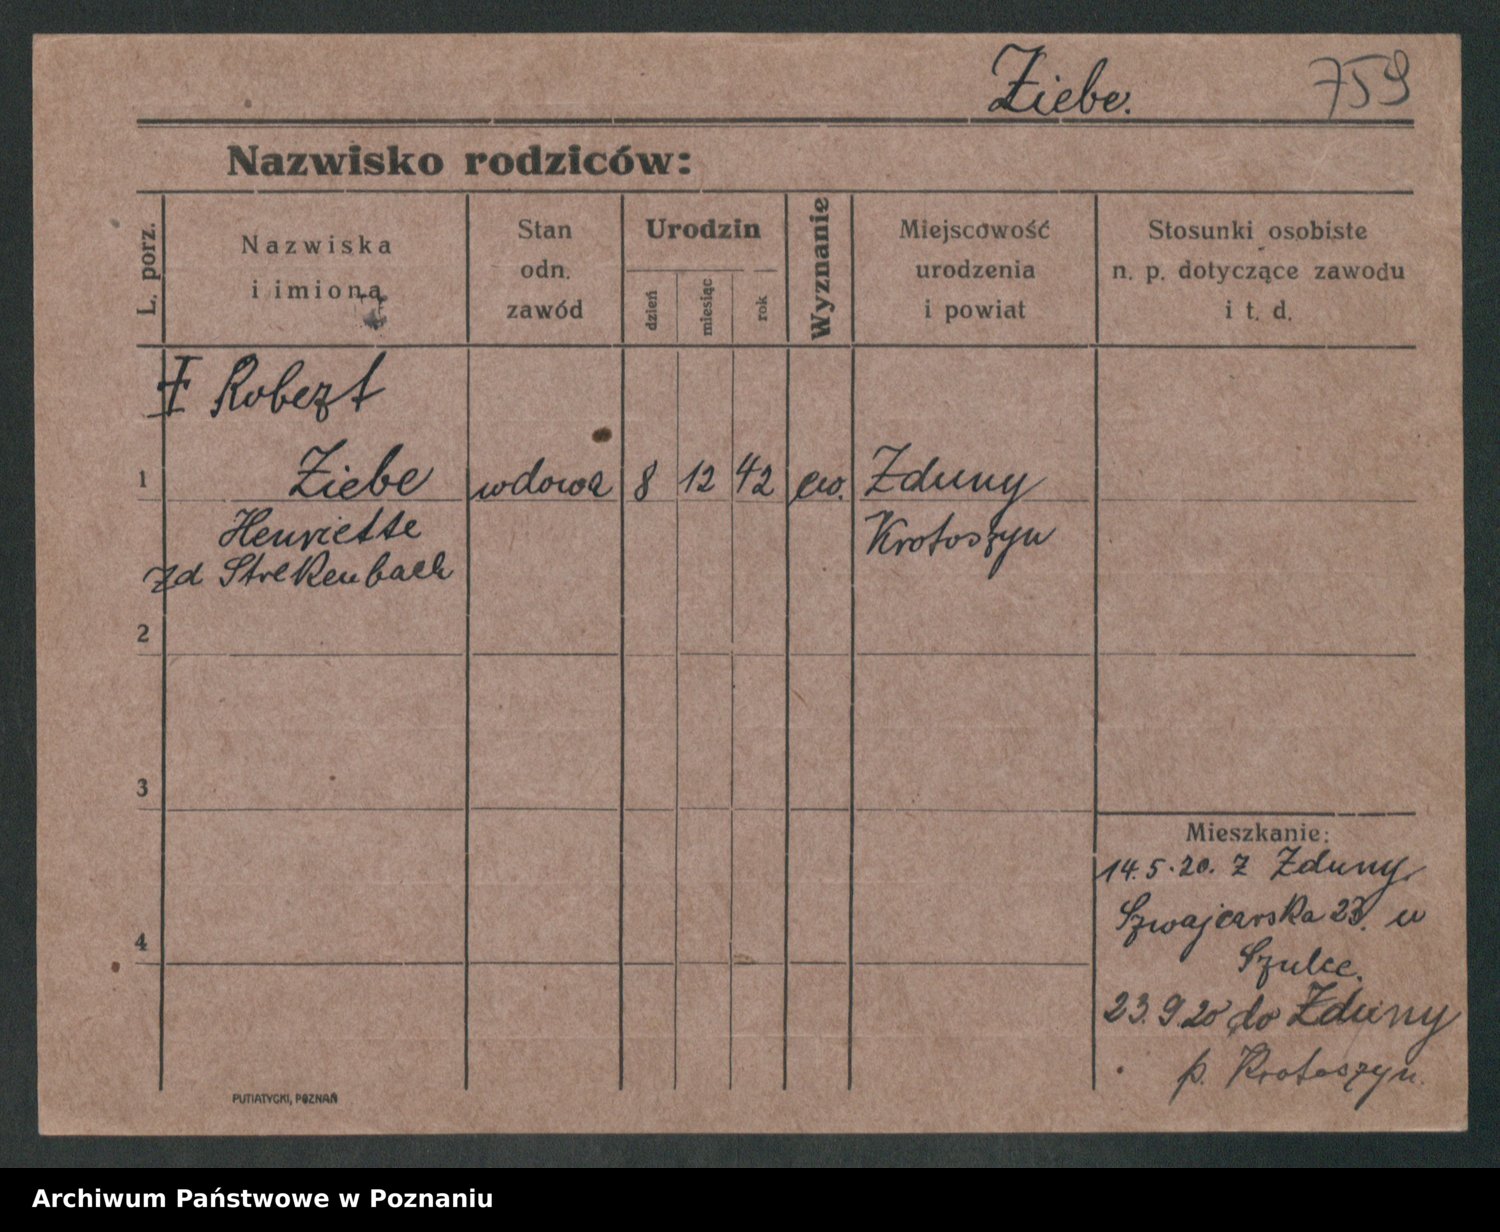 Ziebe. 759
Nazwisko rodziców:
L. porz.
Nazwiska
i imiona
Stan
odn.
zawód
Urodzin
dzień
miesiąc
rok
Wyznanie
Miejscowość
urodzenia
i powiat
Stosunki osobiste
n. p. dotyczące zawodu
i t. d.
Robert
1 Ziebe wdowa 8 12 42 ew. Zduny
Henriette Krotoszyn
zd Strekenbach
2
3
Mieszkanie:
14.5.20. z Zduny
Szwajcarska 23. u
4
Szulce.
23.9.20 do Zduny
p. Krotoszyn.
PUTIATYCKI, POZNAŃ
Archiwum Państwowe w Poznaniu